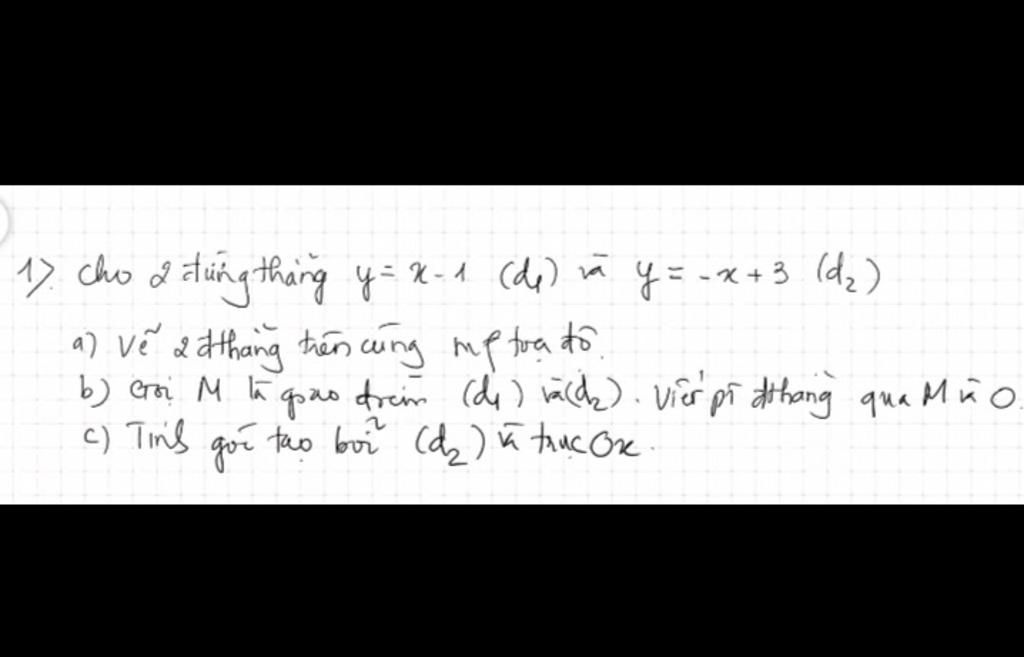 1). Cho 2 đường thẳng y = x - 1 (d₁) và y = -x + 3 (d₂)
a) Vẽ 2 đthẳng trên cùng mp tọa độ.
b) Gọi M là giao điểm (d₁) và (d₂). Viết pt đthẳng qua M và O.
c) Tính góc tạo bởi (d₂) và trục Ox.